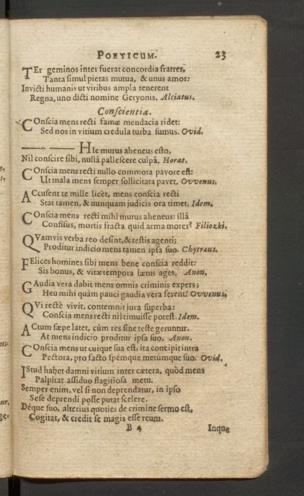 POETICUM. 23
TEr geminos inter fuerat concordia fratres,
Tanta simul pietas mutua, & unus amor:
Invicti humanis ut viribus ampla tenerent
Regna, uno dicti nomine Geryonis. Alciatus.
Conscientiæ.
COnscia mens recti famæ mendacia ridet:
Sed nos in vitium credula turba sumus. Ovid.
HIc murus aheneus esto,
Nil conscire sibi, nullâ pallescere culpâ. Horat.
COnscia mens recti nullo commota pavore est:
Ut mala mens semper sollicitata pavet. Owenus.
ACcusent te mille licet, mens conscia recti
Stat tamen, & nunquam judicis ora timet. Idem.
COnscia mens recti mihi murus aheneus: illâ
Confisus, mortis fracta quid arma moror?
QVamvis verba reo desint, & testis agenti;
Proditur indicio mens tamen ipsa suo. Chytræus.
FElices homines sibi mens bene conscia reddit:
Sis bonus, & vitæ tempora læins ages. Anon.
GAudia vera dabit mens omnis criminis expers;
Heu mihi quàm pauci gaudia vera ferent! Owenus.
QVi rectè vivit, contemnit jura superba:
Conscia mens recti nil timuisse potest. Idem.
ACtum sæpe latet, cùm res sine teste geruntur.
At mens indicio proditur ipsa suo. Anon.
COnscia mens ut cuique sua est, ita concipit intra
Pectora, pro facto spémque metúmque suo. Ovid.
IStud habet damni vitium inter cætera, quòd mens
Palpitat assiduo flagitiosa metu.
Semper enim, vel si non deprendatur, in ipso
Sese deprendi posse putat scelere.
Déque suo, alterius quoties de crimine sermo est,
Cogitat, & credit se magis esse reum.
B 4 Inque